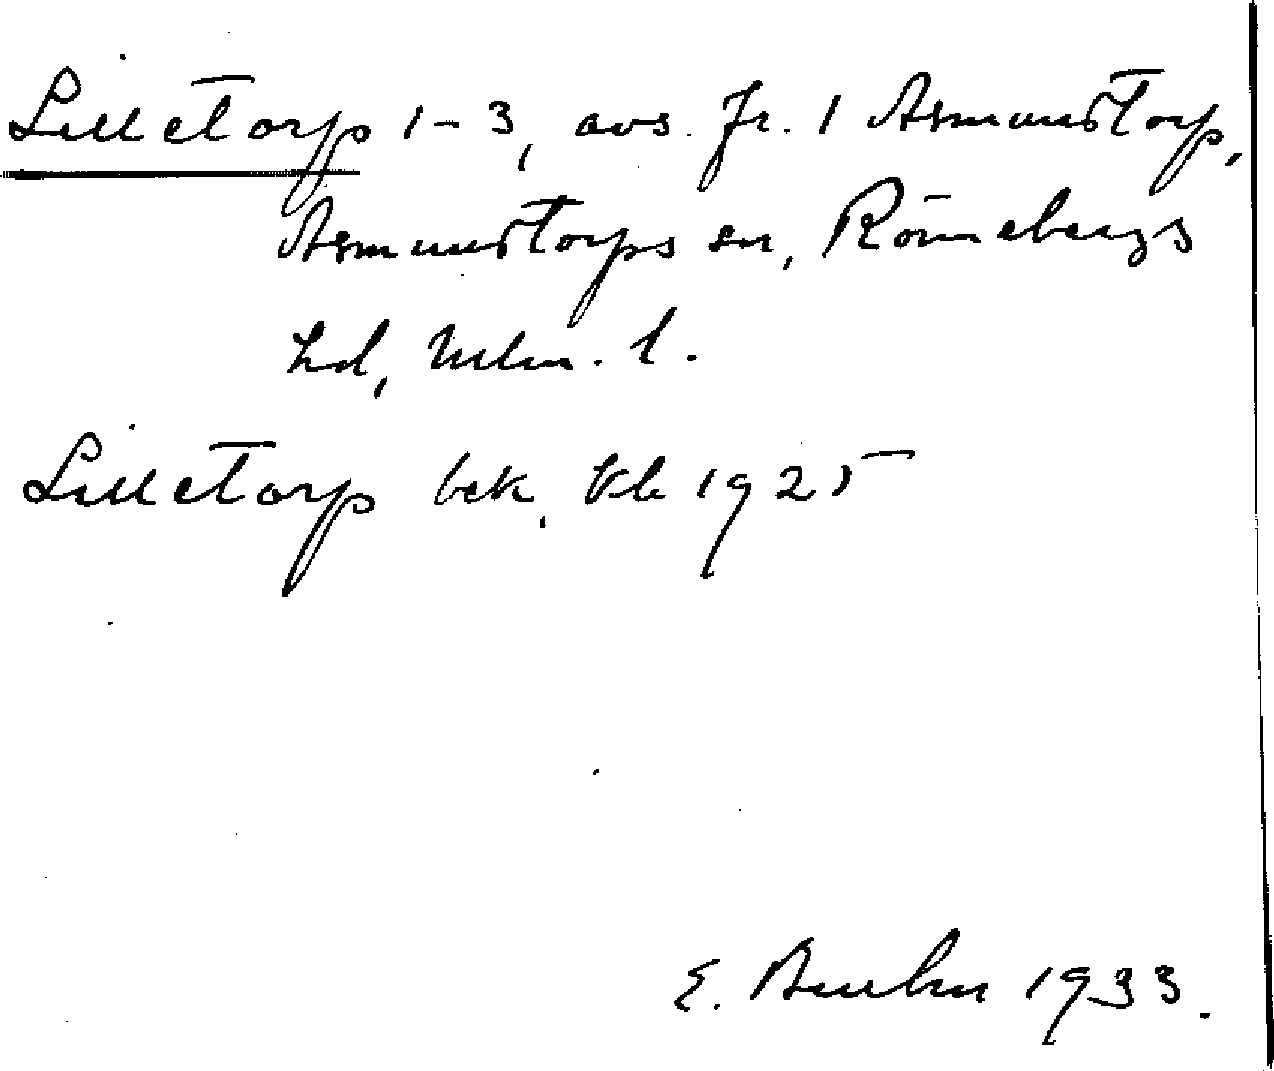 Lilletorp 1-3, avs. fr. 1 Asmundtorp,
Asmundtorps sn, Rönnebergs
hd, Mlm. l.
Lilletorp bek. 1925
E. 1933.